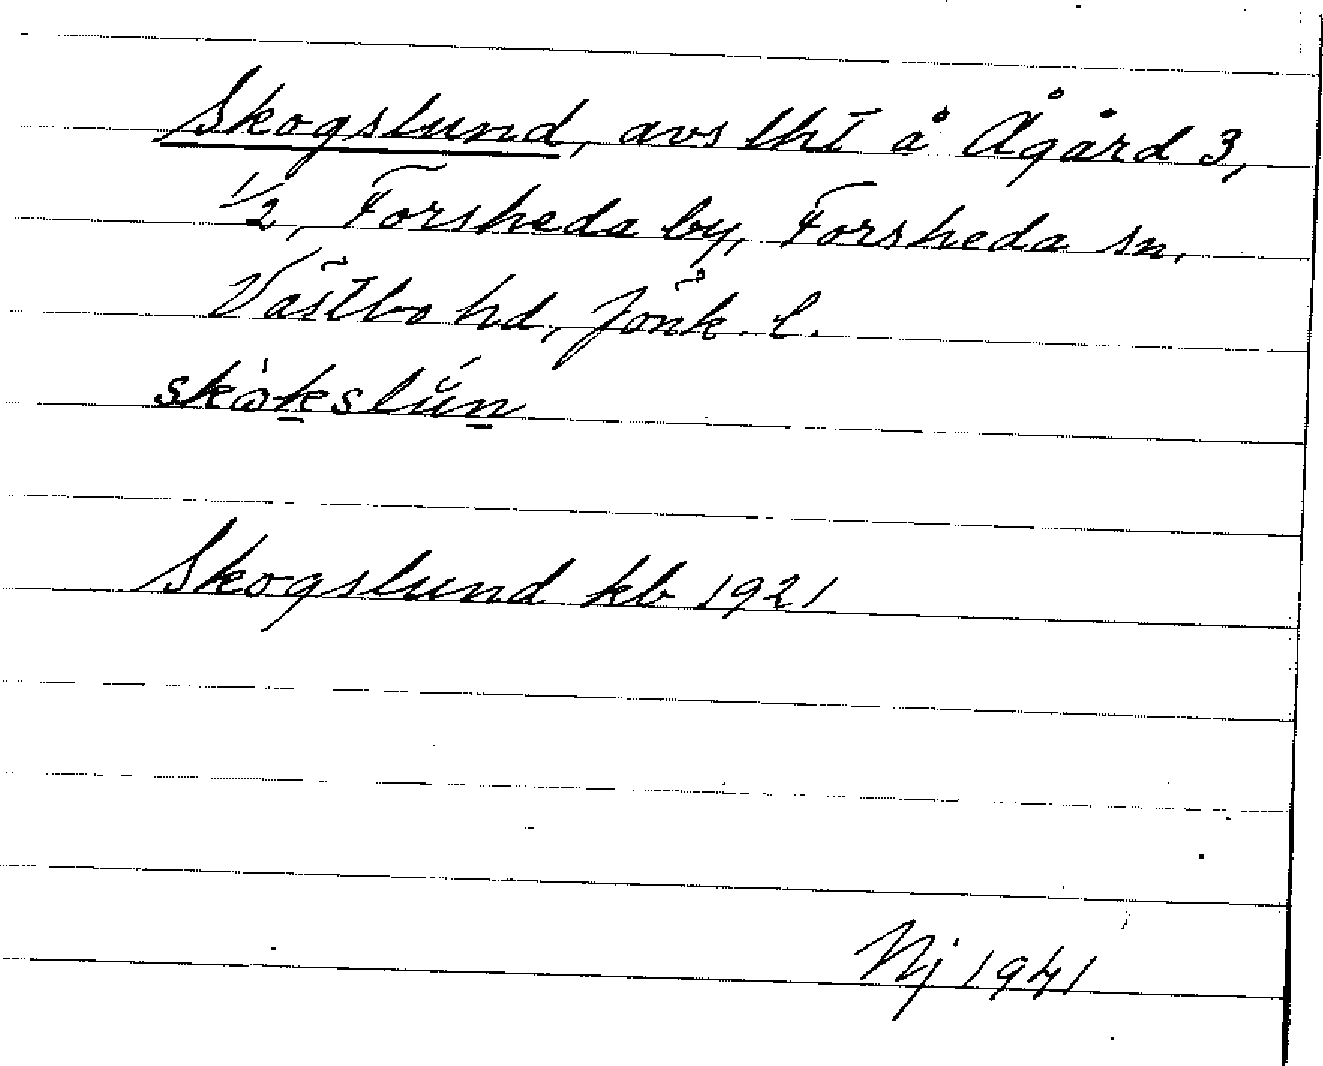 Skogslund, avs lht å Ågård 3,
1/2, Forsheda by, Forsheda sn,
Västbo hd, Jönk. l.
skò̱kslŭ́ṉ
Skogslund kb 1921
Nj 1941